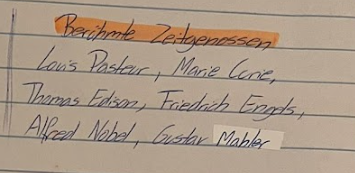 Berühmte Zeitgenossen
Louis Pasteur, Marie Curie,
Thomas Edison, Friedrich Engels,
Alfred Nobel, Gustav Mahler